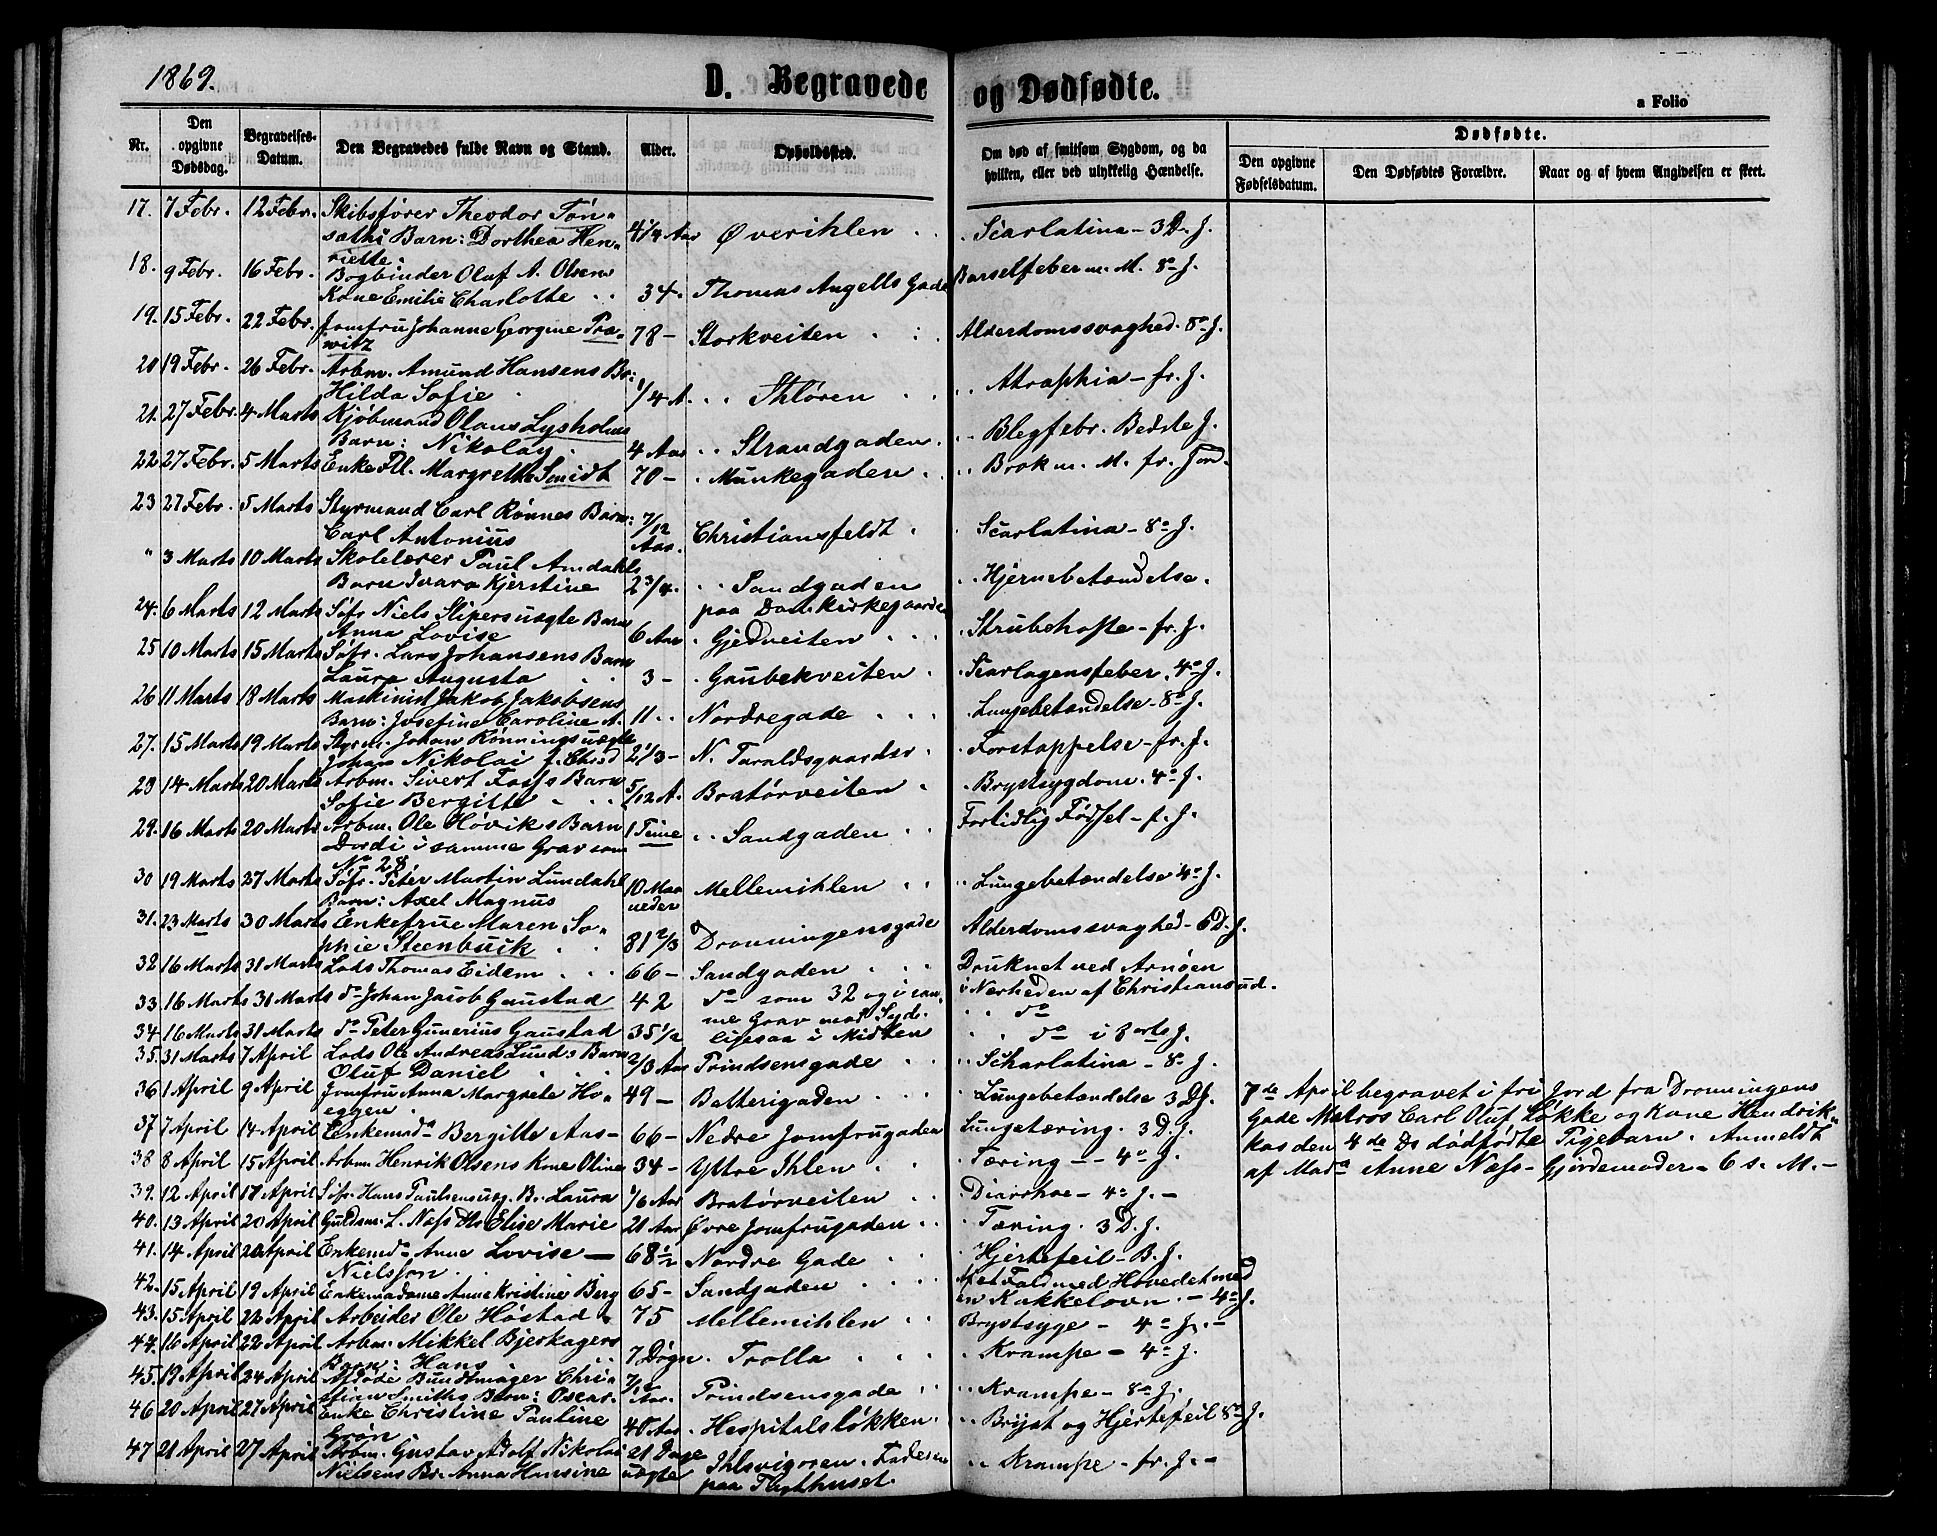 1869.
D. Begravede og Dødfødte.
a Folio
Nr.
Den opgivne Dødsdag.
Begravelses-Datum.
Den Begravedes fulde Navn og Stand.
Alder.
Opholdssted.
Om død af smitsom Sygdom, og da hvilken, eller ved ulykkelig Hændelse.
Dødfødte.
Den opgivne Fødselsdatum.
Den Dødfødtes Forældre.
Naar og af hvem Angivelsen er skeet.
17. 7 Febr. 12 Febr. Skibsfører Theodor Tøn-
saths Barn: Dorthea Hen- 4 1/4 Aar Øverihlen Scarlatina - 3 D. J.
riette.
18. 9 Febr. 16 Febr. Bogbinder Oluf A. Olsens
Kone Emilie Charlotte 34. Thomas Angells Gade Barselfeber m. M. 8de J.
19. 15 Febr. 22 Febr. Jomfru Johanne Georgine Tra-
witz 78 - Storkveiten Alderdomssvaghed. 8de J.
20 19 Febr. 26 Febr. Arbm. Amund Hansens Br:
Hilda Sofie 1/4 A. Ihløren Atraphia - fr. J.
21. 27 Febr. 4 Marts Kjøbmand Olaus Lysholms
Barn: Nikolay. 4 Aar Strandgaden. Blegfebr. Bedste J.
22 27 Febr. 5 Marts Enke Margrethe Smidt 70 - Munkegaden Brok m. M. fr. Jord.
23 27 Febr. 5 Marts Styrmand Carl Rønnes Barn:
Carl Antonius 7/12 Aar. Christiansfeldt Scarlatina - 8de J.
" 3 Marts 10 Marts Skolelærer Paul Amdahls
Barn Ivara Kjerstine 2 3/4. Sandgaden Hjernebetændelse.
paa Domkirkegaarden
24. 6 Marts 12 Marts Søfr Niels Slipers uægte Barn
Anna Lovise 6 Aar Gjedveiten Strubehoste - fr. J.
25 10 Marts 15 Marts Søfr. Lars Johansens Barn
Laura Augusta 3 - Gaubekveiten Scarlagensfeber. 4de J.
26 11 Marts 18 Marts Maskinist Jakob Jakobsens
Barn: Josefine Caroline A. 11 Nordregade Lungebetændelse - 8de J.
27. 15 Marts 19 Marts Styrm. Johan Rønnings uægte
Johan Nikolai f. Chrsd 2 1/3 - N. Taraldsgaardsv. Forstoppelse - fr. J.
28 14 Marts 20 Marts Arbm. Sivert Foss's Barn
Sofie Bergitte 5/12 A. Bratørveiten Brystsygdom. 4de J.
29. 16 Marts 20 Marts Arbm. Ole Høviks Barn
Dordi i samme Grav som 1 Time Sandgaden Fortidlig Fødsel - f. J.
No 28
30 19 Marts 27 Marts Søfr. Peter Martin Lundahl
Barn: Axel Magnus 10 Maaneder Mellemihlen Lungebetændelse 4de J.
31. 23 Marts 30 Marts Enkefrue Maren So-
phie Steenbuck 81 2/3 Dronningensgade Alderdomssvaghed - 6 D. J.
32 16 Marts 31 Marts Lods Thomas Eidem 66 - Sandgaden Druknet ved Arnøen
i Nærheden af Christiansund.
33. 16 Marts 31 Marts do Johan Jacob Gaustad 42 do som 32 og i sam- do
me Grav mod Syd.
34 16 Marts 31 Marts do Peter Gunerius Gaustad 35 1/2 ligesaa i Midten do i 8orts J.
35. 31 Marts 7 April Lods Ole Andreas Lunds Barn
Oluf Daniel 2/3 Aar Prindsensgade Scharlatina - 8de J.
36 1 April 9 April Jomfru Anna Margrete Ho-
eggen. 49 - Batterigaden Lungebetændelse 3 D J.
7de April begravet i fri Jord fra Dronningens
Gade Matros Carl Oluf Løkke og Kone Hendrik-
kas den 4de Ds dødfødte Pigebarn. Anmeldt
af Mada Anne Næss - Gjordemoder - 6 s. M. -
37 7 April 14 April Enkemada Bergitte Aas - 66 - Nedre Jomfrugaden Lungetæring. 3 D. J.
38 8 April 15 April Arbm Henrik Olsens Kone Oline 34 - Ytre Ihlen Tæring - 4de J.
39. 12 April 17 April Søfr Hans Paulsens uæg. B. Laura 1/6 Aar Bratørveiten Diarrhoe - 4de J. -
40. 13 April 20 April Guldsm. L. Næss Dr Elise Marie 21 Aar Øvre Jomfrugaden Tæring. 3 D. J.
41. 14 April 20 April Enkemda Anne Lovise - 68 1/2 Nordre Gade Hjertefeil - B. J.
Nielsson.
42. 15 April 19 April Enkemadame Anne Kristine Berg 65 - Sandgaden Af et Fald med Hovedet med
en Kakkelovn. - 4de J.
43. 15 April 22 April Arbeider Ole Høstad 75 Mellemihlen Brystsyge - 4de J. -
44. 16 April 22 April Arbm. Mikkel Bjerkagers
Barn: Hans 7 Døgn. Trolla Krampe - 4de J.
45. 19 April 24 April Afdøde Bundtmager Chri-
stian Smiths Barn: Oscar. Aar. Prindsensgade Krampe - 8de J.
46 20 April 27 April Enke Christine Pauline
Gran 40 Aar Hospitalsløkken. Bryst og Hjertefeil 8de J.
47 21 April 27 April Arbm. Gustav Adolf Nikolai 21 Dage Ihlsvigøren. Faderen Krampe - fr. J. -
Nielsens Br. Anna Hansine uægte paa Tugthuset.